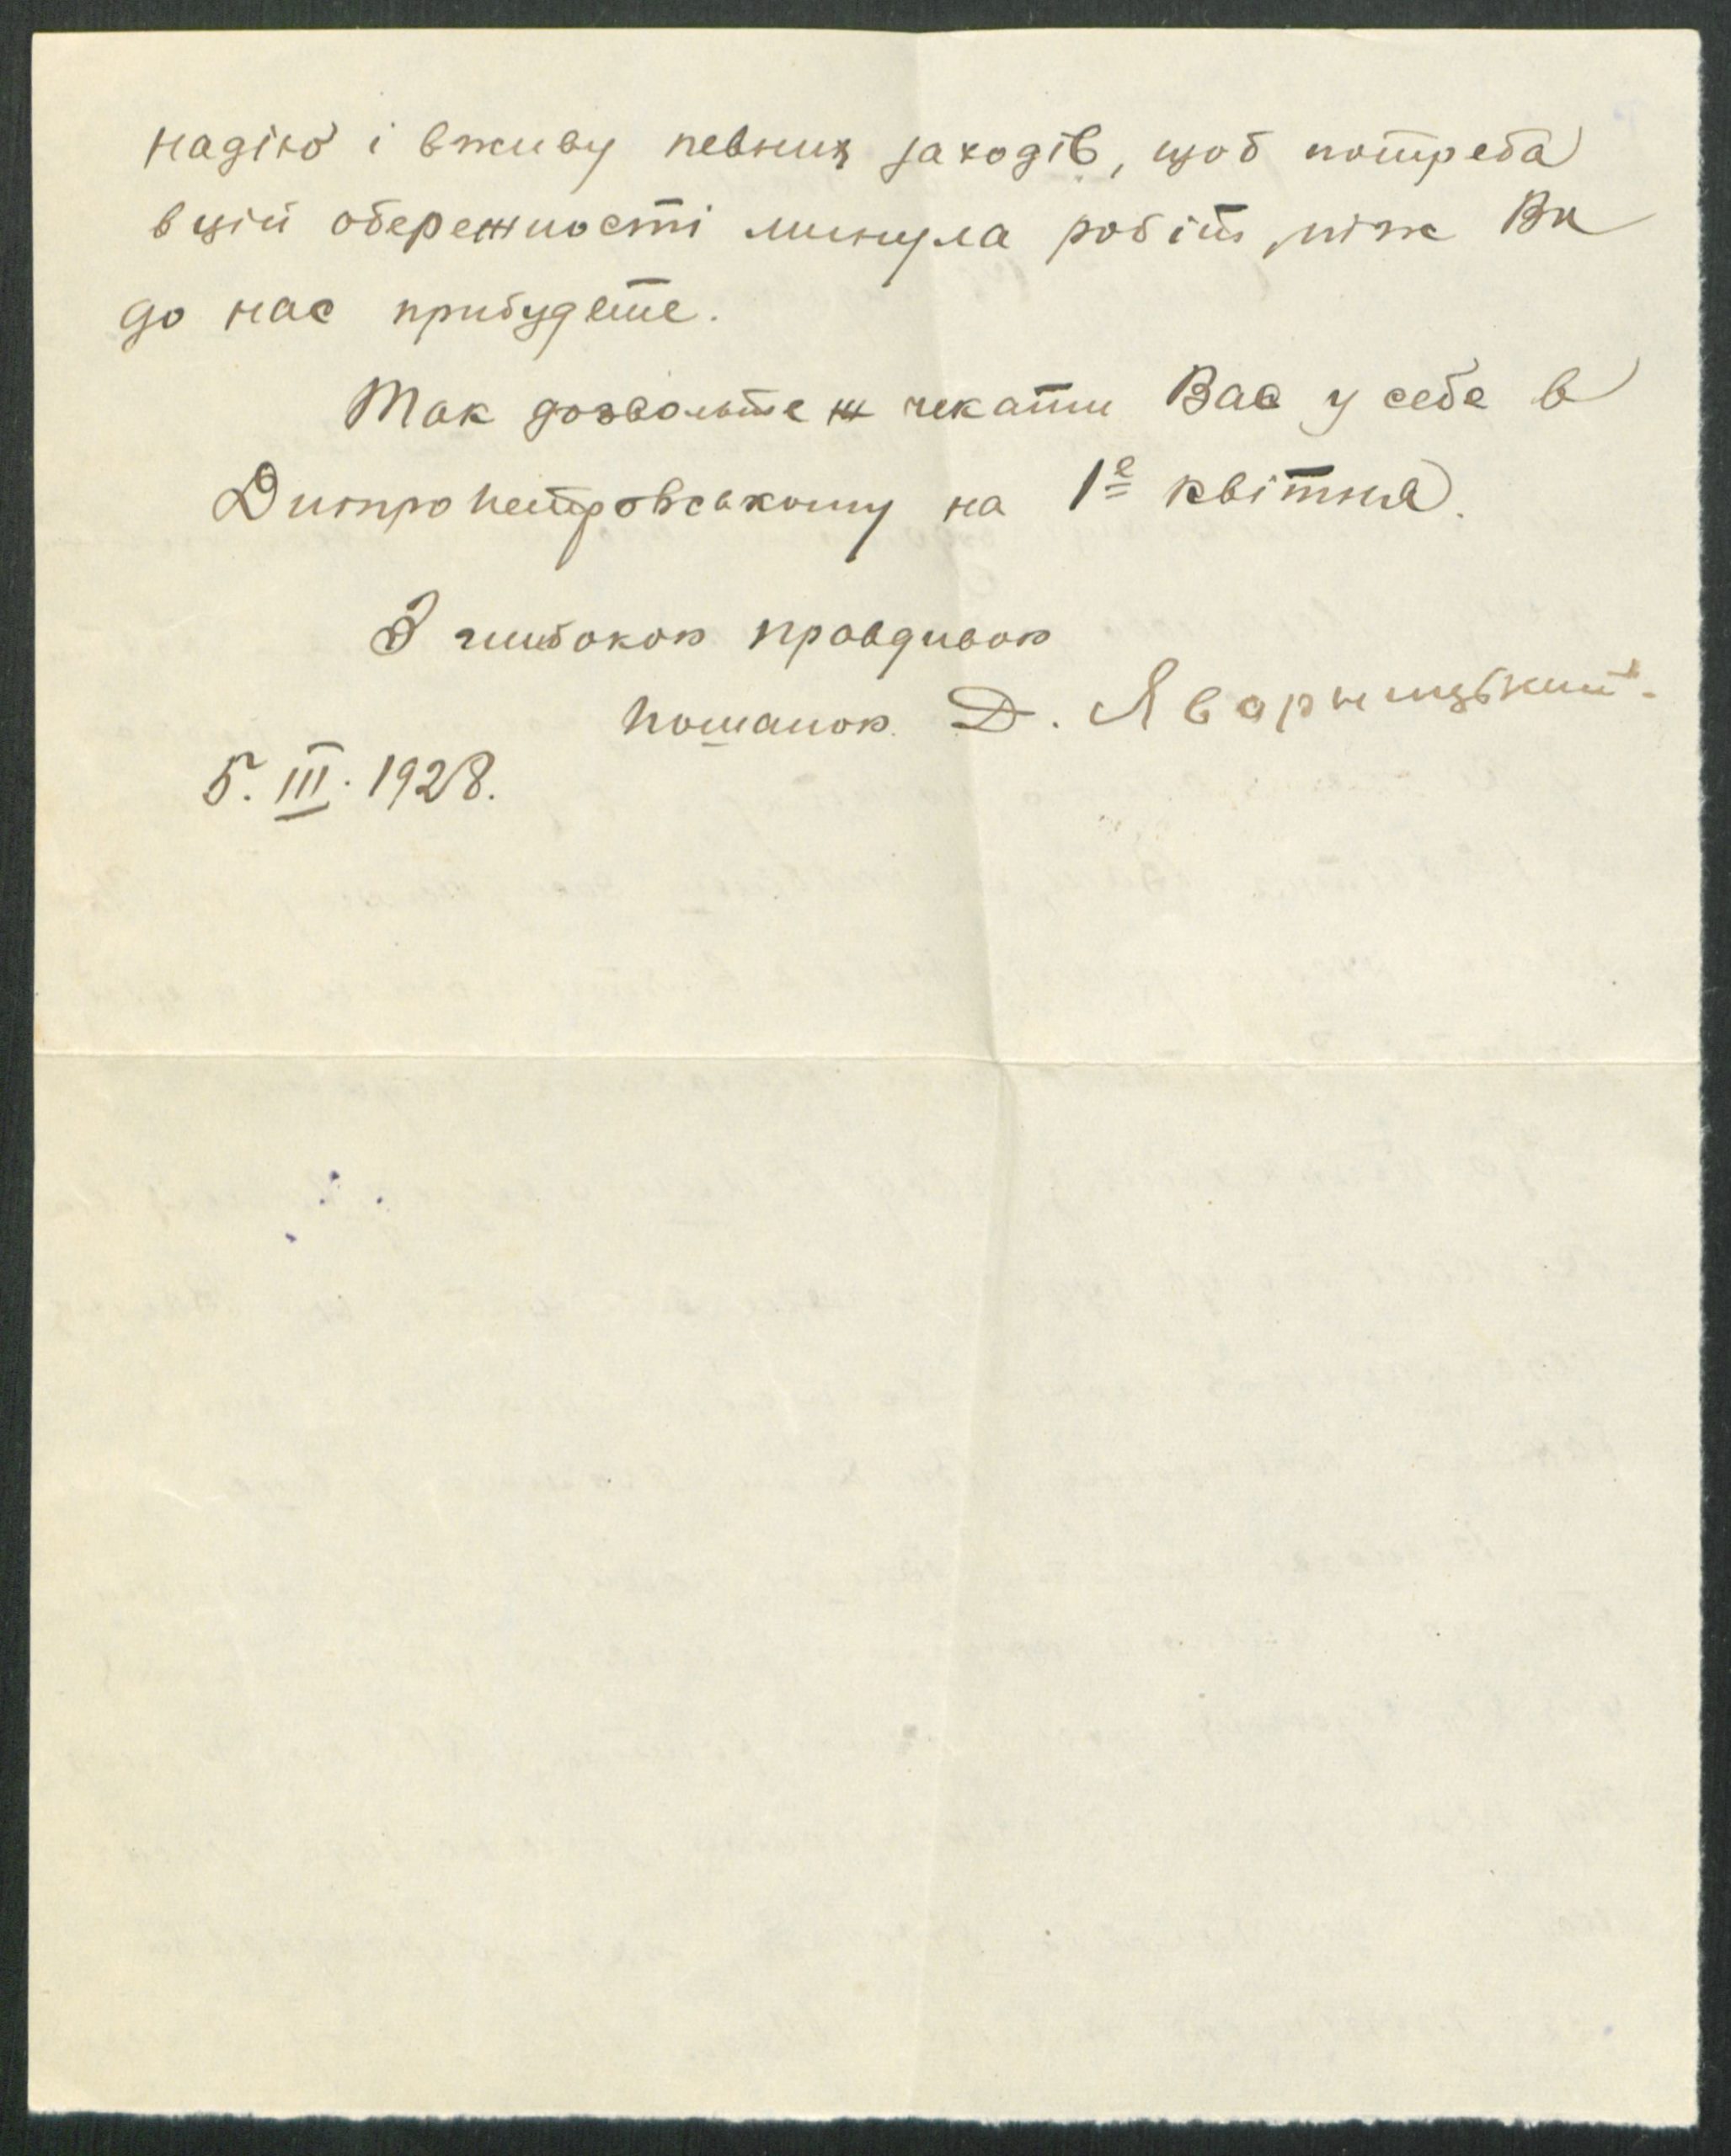 надію і вживу певних заходів, щоб потреба
в цій обережності минула ніж Ви
до нас прибудете.
Так дозвольте ж чекати Вас у себе в
Дніпропетровському на 1е квітня.
З глибокою правдивою
пошаною Д. Яворницький.
5. III. 1928.